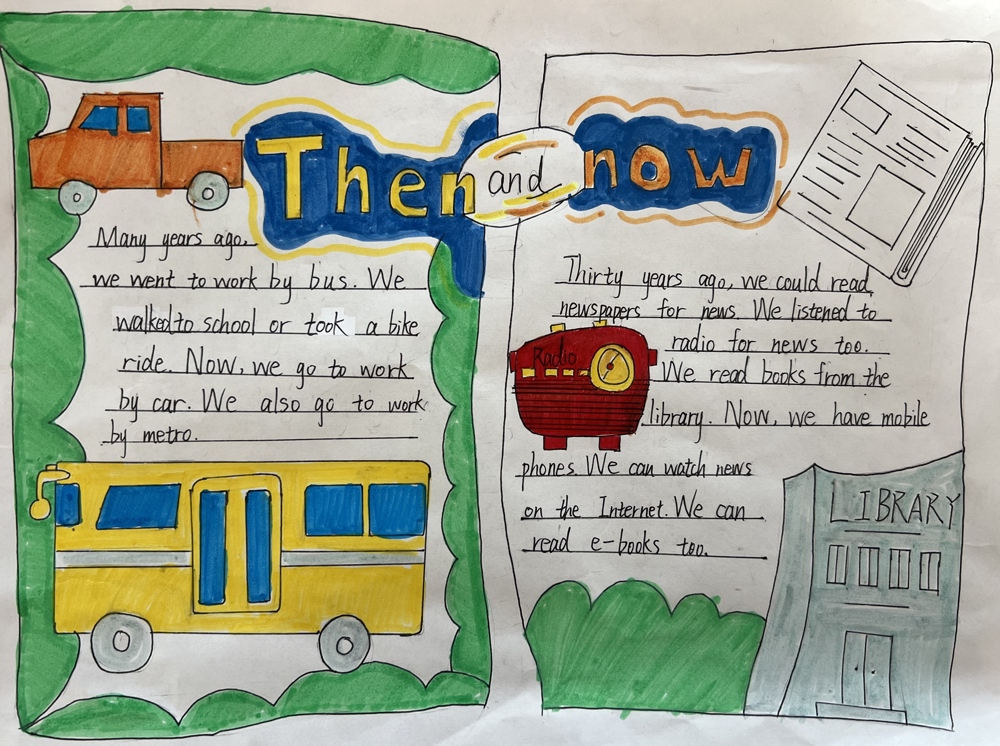 Then and now
Many years ago,
we went to work by bus. We
walked to school or took a bike
ride. Now, we go to work
by car. We also go to work
by metro.
Thirty years ago, we could read
newspapers for news. We listened to
radio for news too.
We read books from the
library. Now, we have mobile
phones. We can watch news
on the Internet. We can
read e-books too.
Radio
LIBRARY